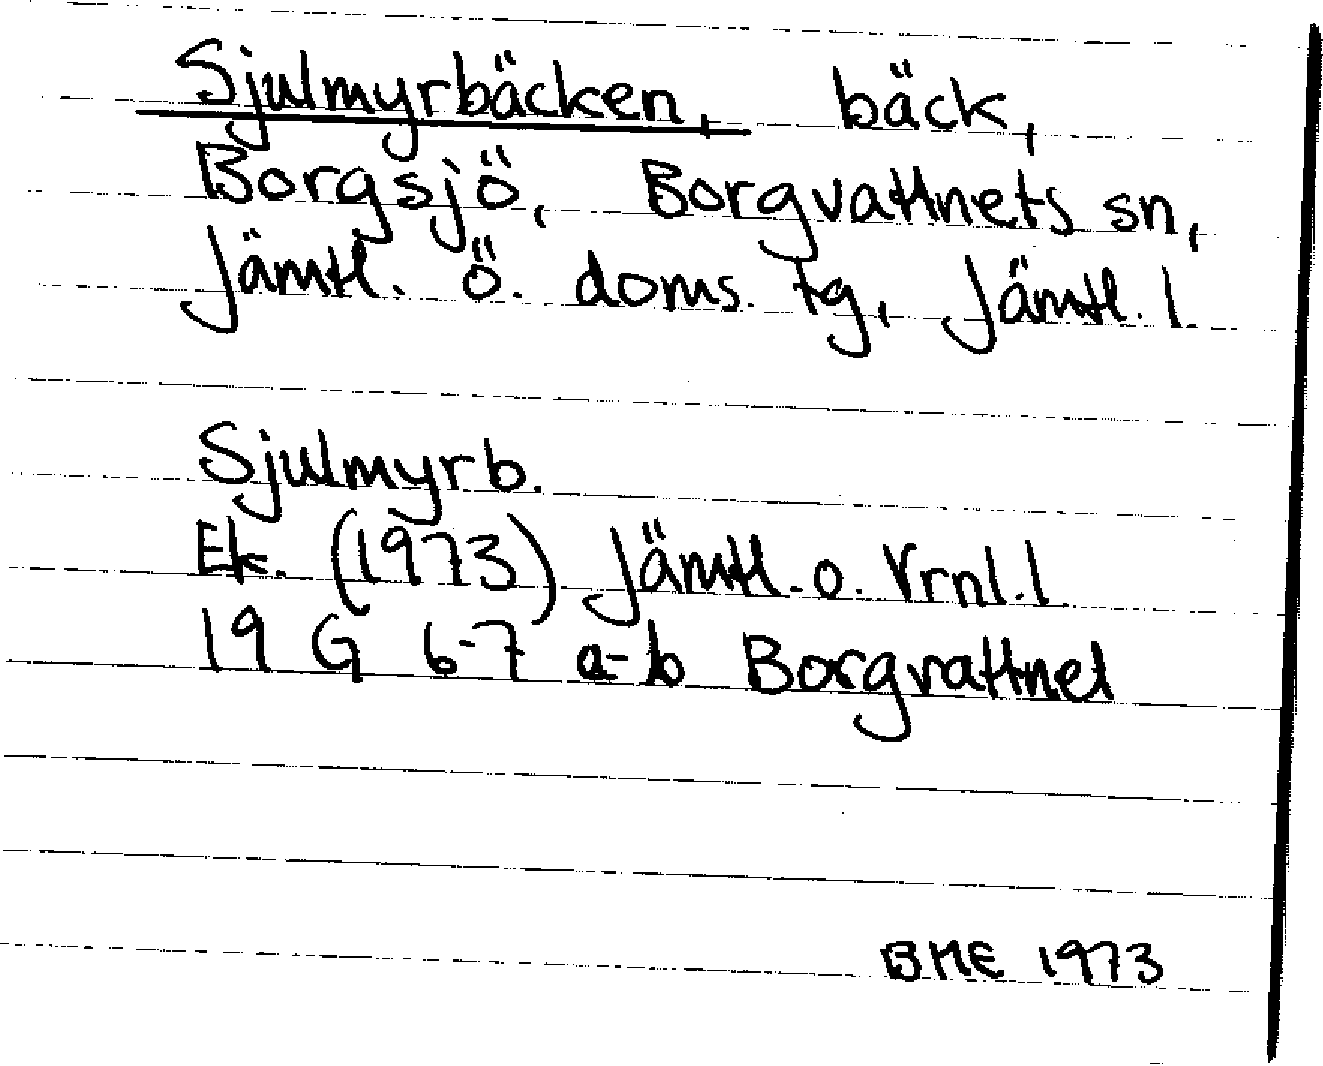 Sjulmyrbäcken, bäck,
Borgsjö, Borgvattnets sn,
Jämtl. ö. doms. tg, Jämtl. l.
Sjulmyrb.
Ek. (1973) Jämtl. o. Vrnl. l.
19 G 6-7 a-b Borgvattnet
BME 1973